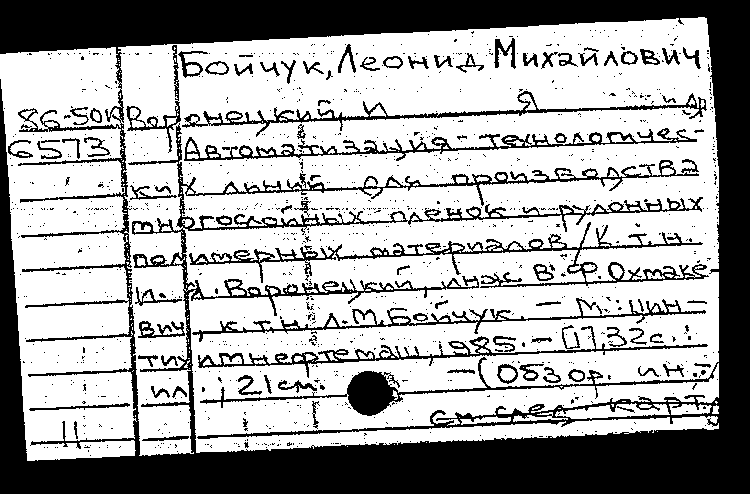 Бойчук, Леонид Михайлович
86-50к Воронецкий, И Я и др
6573 Автоматизация технологичес-
ких линий для производства
многослойных пленок и рулонных
полимерных материалов / К. т. н.
И. Я. Воронецкий, инж. В. Ф. Охтаке-
вич, к. т. н. Л. М. Бойчук. — М.: Цин-
тихимнефтемаш, 1985. — 32 с.:
ил.; 21 см. — (Обзор. ин.-
см. след. карту
11